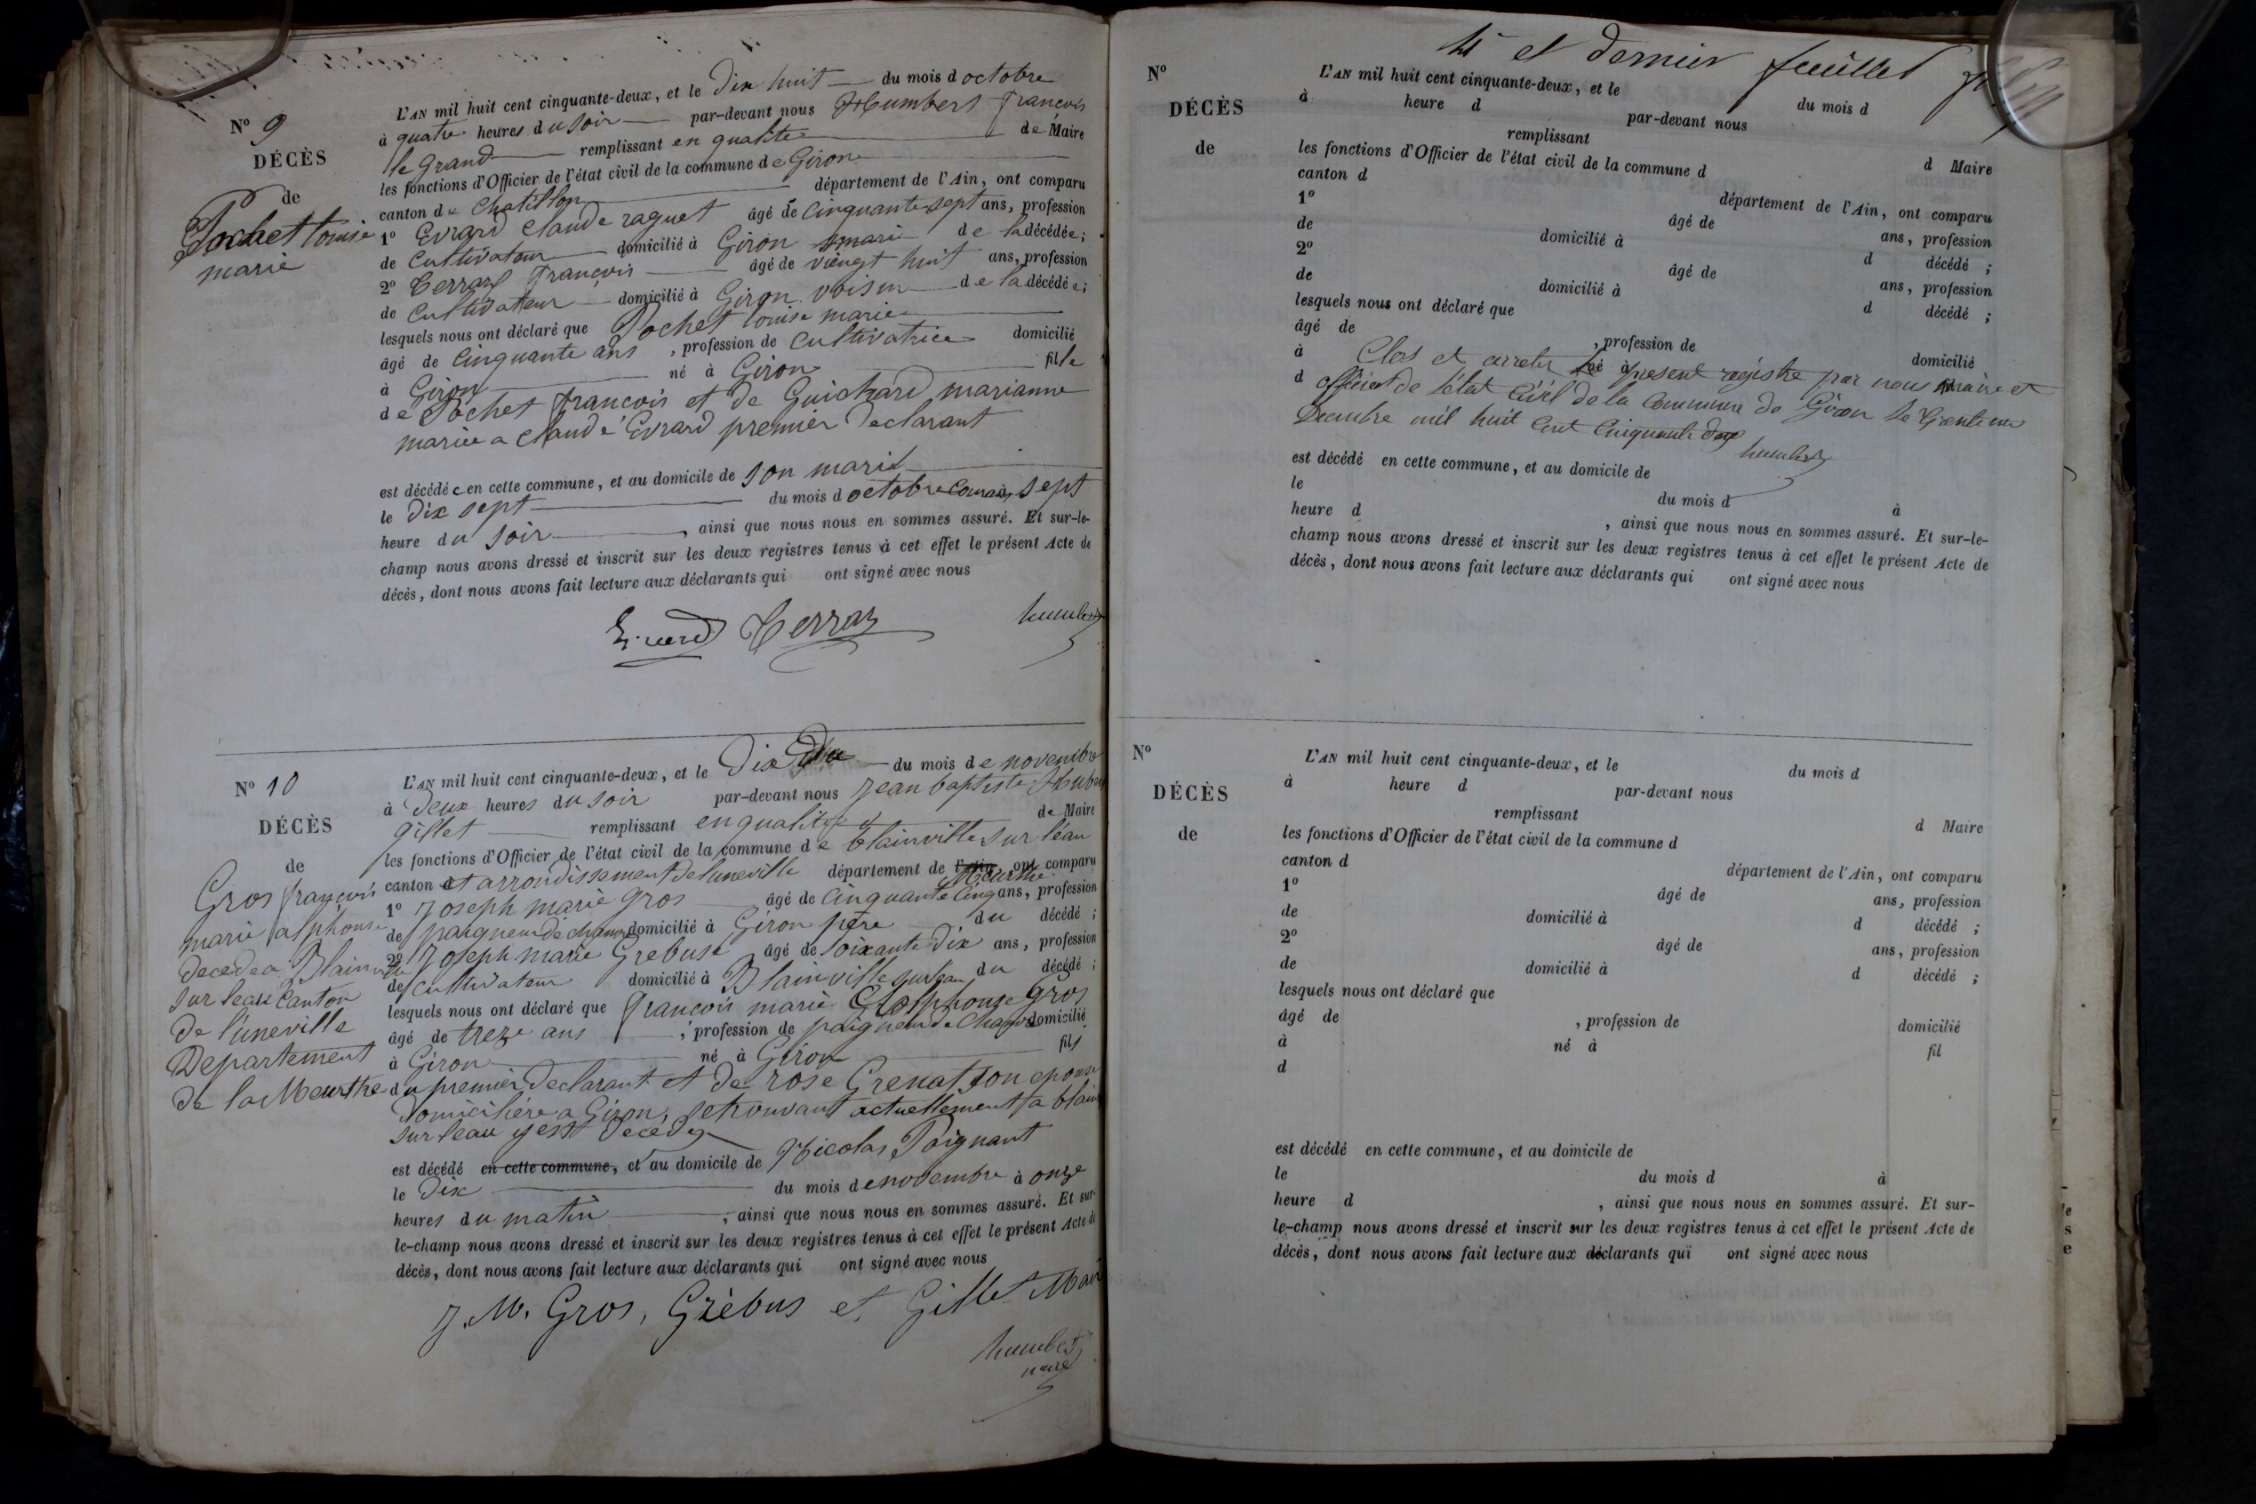 N° 9
DÉCÈS
de
Pochet louise
marie
L'AN mil huit cent cinquante-deux, et le Dix huit du mois d octobre
à quatre heures du soir par-devant nous Humbert françois
le grand remplissant en qualité de Maire
les fonctions d'Officier de l'état civil de la commune de Giron
canton de Chatillon département de l'Ain, ont comparu
1° Evrard Claude raguet âgé de Cinquante sept ans, profession
de Cultivateur domicilié à Giron mari de la décédée;
2° Terraz françois âgé de vingt huit ans, profession
de Cultivateur domicilié à Giron voisin de la décédée;
lesquels nous ont déclaré que Pochet louise marie
âgé de Cinquante ans, profession de Cultivatrice domicilié
à Giron né à Giron fille
de Pochet françois et de Guichard marianne
mariée a claude Evrard premier Declarant
est décédée en cette commune, et au domicile de son marit
le Dix sept du mois d octobre Courant à sept
heure du soir, ainsi que nous nous en sommes assuré. Et sur-le-
champ nous avons dressé et inscrit sur les deux registres tenus à cet effet le présent Acte de
décès, dont nous avons fait lecture aux déclarants qui ont signé avec nous
Evrard Terraz humbert
N° 10
DÉCÈS
de
Gros françois
marie alphonse
Decede a Blainville
sur leau Canton
de luneville
Departement
de la Meurthe
L'AN mil huit cent cinquante-deux, et le Dix du mois de novembre
à Deux heures du soir par-devant nous Jean baptiste
gillet remplissant en qualité de Maire
les fonctions d'Officier de l'état civil de la commune de blainville sur léau
canton et arrondissement de luneville département de l'Ain Meurthe, ont comparu
1° Joseph marie gros âgé de Cinquante Cinq ans, profession
de paigneur de chanvre domicilié à Giron père du décédé;
2° Joseph marie Grebuse âgé de soixante Dix ans, profession
de Cultivateur domicilié à Blainville sur leau du décédé;
lesquels nous ont déclaré que françois marie alphonse Gros
âgé de treze ans, profession de paigneur de Chanvre domicilié
à Giron né à Giron fils
du premier Declarant et de rose Grenat son epouse
Domiciliére a Giron, se trouvant actuellement a blain
sur leau y est Decédé
est décédé en cette commune, et au domicile de Nicolas Paignant
le Dix du mois de novembre à onze
heures du matin, ainsi que nous nous en sommes assuré. Et sur-
le-champ nous avons dressé et inscrit sur les deux registres tenus à cet effet le présent Acte de
décès, dont nous avons fait lecture aux déclarants qui ont signé avec nous
J. M. Gros, Grèbus et Gillet Mair
humbert
maire
4e et dernier feuillet
N°
DÉCÈS
de
L'AN mil huit cent cinquante-deux, et le du mois d
à heure d par-devant nous
remplissant d Maire
les fonctions d'Officier de l'état civil de la commune d
canton d département de l'Ain, ont comparu
1° âgé de ans, profession
de domicilié à d décédé ;
2° âgé de ans, profession
de domicilié à d décédé ;
lesquels nous ont déclaré que
âgé de , profession de domicilié
à né à
d
Clos et arreter le present registre par nous maire et
officier de l'état civil de la Commune de Giron le trente un
Decembre mil huit Cent Cinquante deux
humbert
est décédé en cette commune, et au domicile de
le du mois d à
heure d , ainsi que nous nous en sommes assuré. Et sur-le-
champ nous avons dressé et inscrit sur les deux registres tenus à cet effet le présent Acte de
décès, dont nous avons fait lecture aux déclarants qui ont signé avec nous
N°
DÉCÈS
de
L'AN mil huit cent cinquante-deux, et le du mois d
à heure d par-devant nous
remplissant d Maire
les fonctions d'Officier de l'état civil de la commune d
canton d département de l'Ain, ont comparu
1° âgé de ans, profession
de domicilié à d décédé ;
2° âgé de ans, profession
de domicilié à d décédé ;
lesquels nous ont déclaré que
âgé de , profession de domicilié
à né à fil
d
est décédé en cette commune, et au domicile de
le du mois d à
heure d , ainsi que nous nous en sommes assuré. Et sur-
le-champ nous avons dressé et inscrit sur les deux registres tenus à cet effet le présent Acte de
décès, dont nous avons fait lecture aux déclarants qui ont signé avec nous